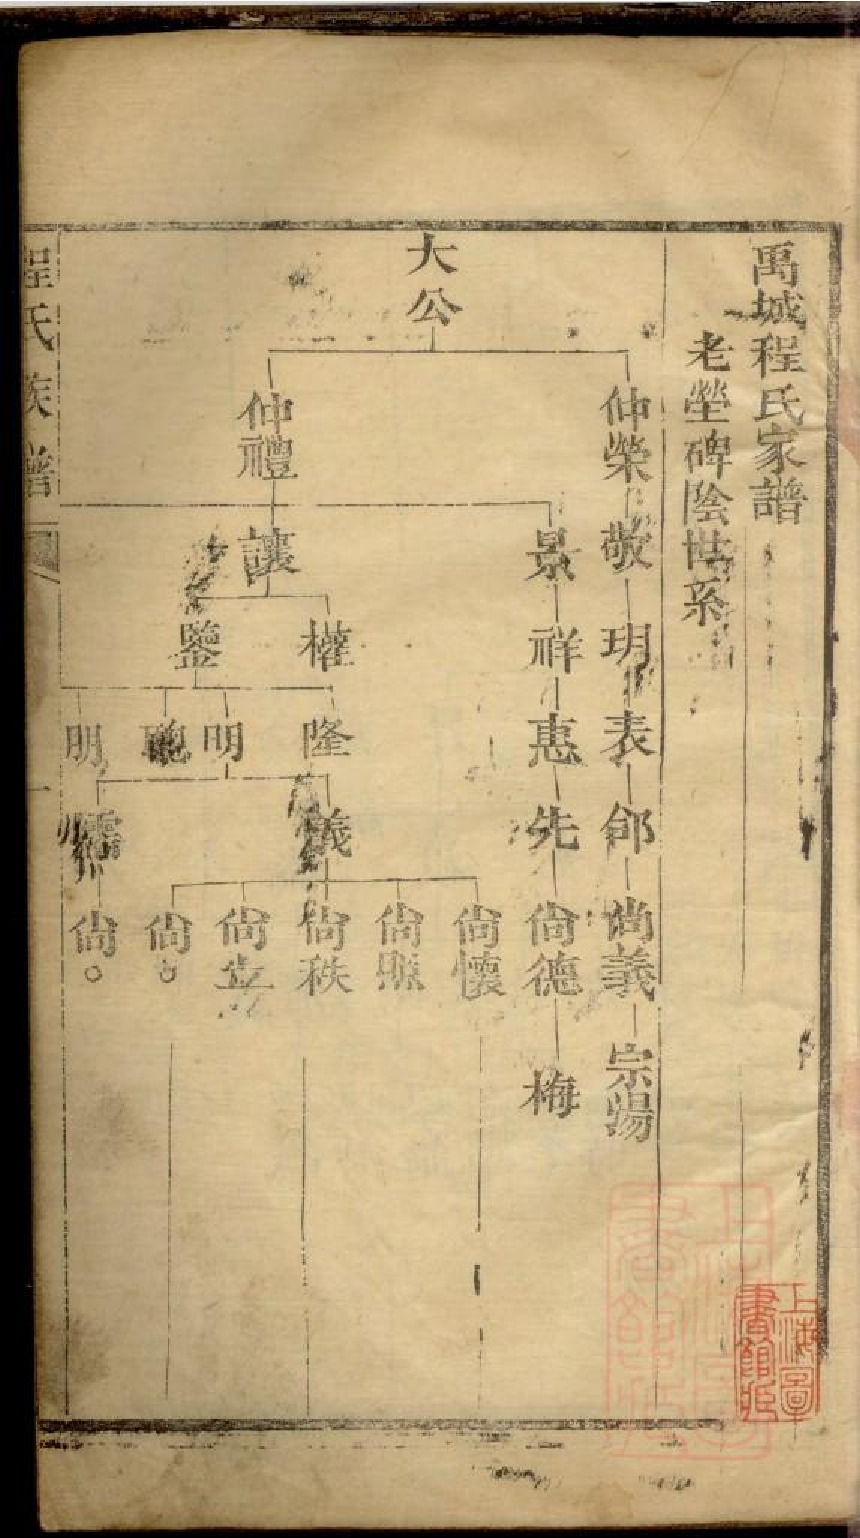 禹城程氏家譜
老塋碑陰世系
大公
仲榮
敬
玥
表
郃
尚義
宗湯
景
祥
惠
先
尚德
梅
仲禮
讓
權
隆
儀
尚懷
尚照
尚秩
尚
尚○
鑒
明
聰
明
儒
尚○
程氏族譜
一
上海圖書館藏